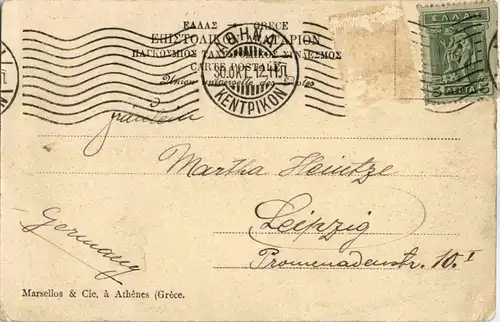 ΕΛΛΑΣ — GRÈCE
ΕΠΙΣΤΟΛΙΚΟΝ ΔΕΛΤΑΡΙΟΝ
ΠΑΓΚΟΣΜΙΟΣ ΤΑΧΥΔΡΟΜΙΚΟΣ ΣΥΝΔΕΣΜΟΣ
CARTE POSTALE
Union universelle des Postes
ΑΘΗΝΑΙ
30.ΟΚΤ. 12
ΚΕΝΤΡΙΚΟΝ
ΕΛΛΑΣ
5 ΛΕΠΤΑ 5
Fräulein
Martha Heintze
Leipzig
Promenadenstr. 10.I
Germany
Marsellos & Cie. à Athènes (Grèce.